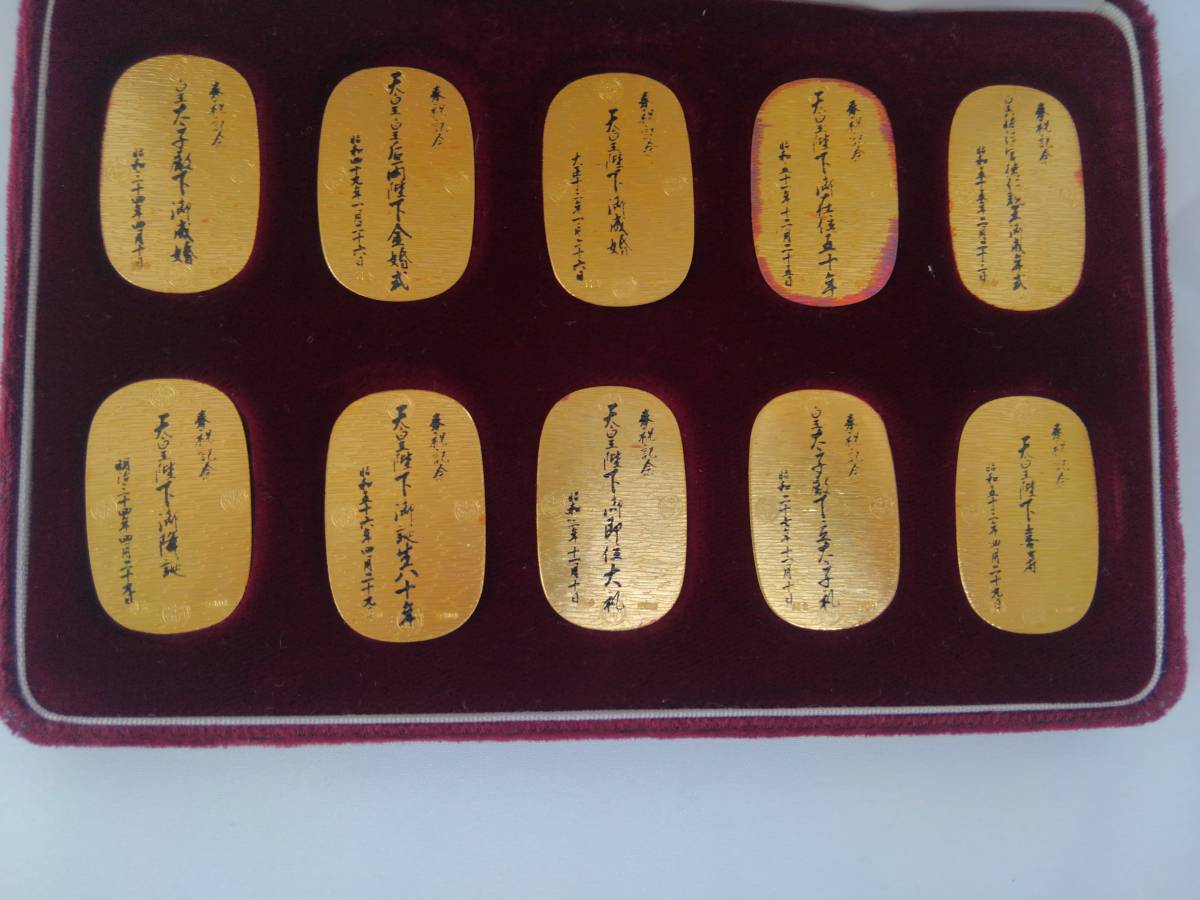 奉祝記念
皇太子殿下御成婚
昭和三十四年四月十日
奉祝記念
天皇皇后両陛下金婚式
昭和四十九年一月二十六日
奉祝記念
天皇陛下御成婚
大正十三年一月二十六日
奉祝記念
天皇陛下御在位五十年
昭和五十一年十二月二十五日
奉祝記念
浩宮徳仁親王御成年式
昭和五十五年二月二十三日
奉祝記念
天皇陛下御降誕
明治三十四年四月二十九日
奉祝記念
天皇陛下御誕生八十年
昭和五十六年四月二十九日
奉祝記念
天皇陛下御即位大礼
昭和三年十一月十日
奉祝記念
皇太子殿下立太子礼
昭和二十七年十一月十日
奉祝記念
天皇陛下喜寿
昭和五十三年四月二十九日